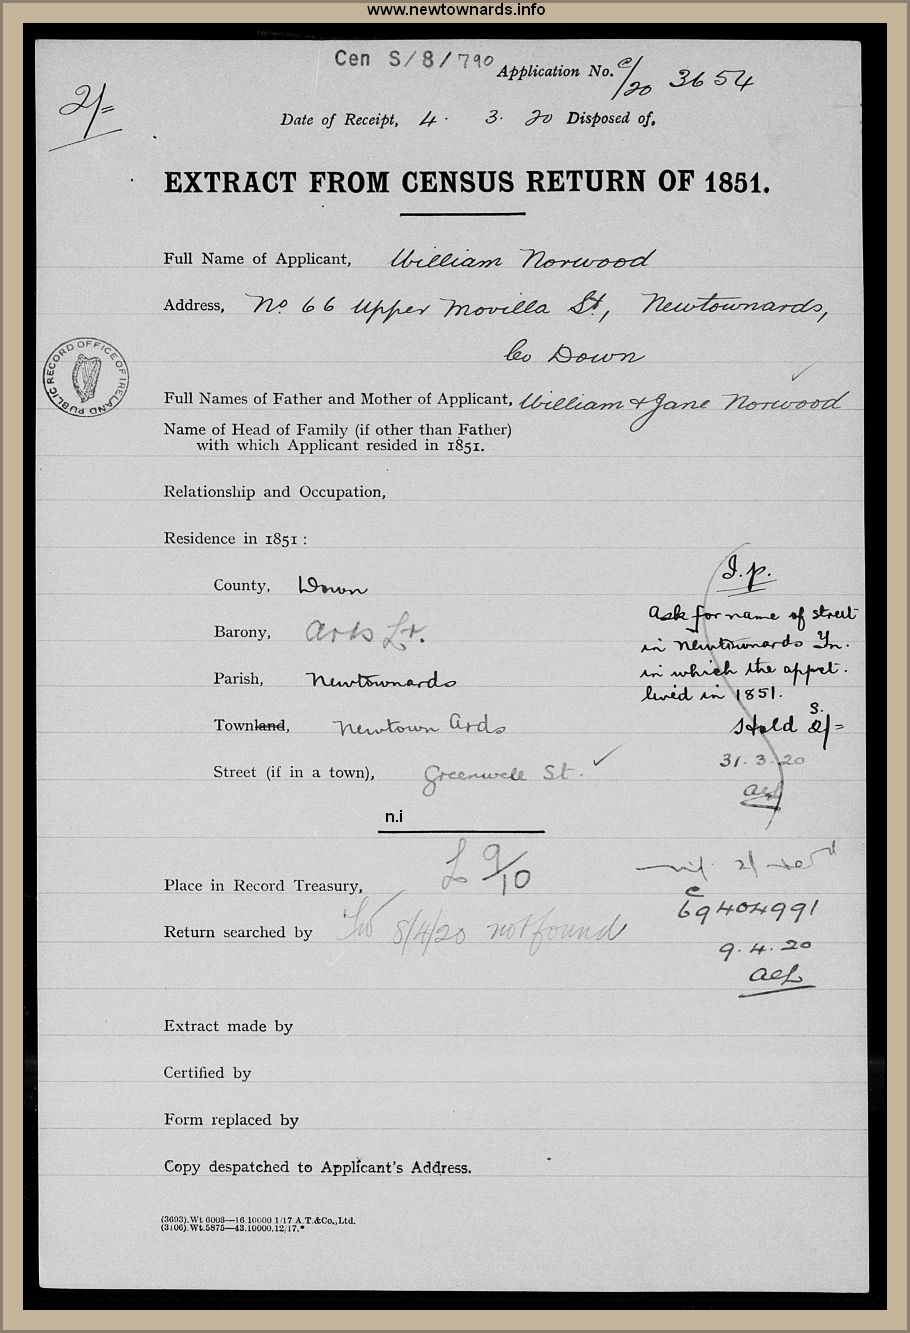 www.newtownards.info
Cen S/8/790
Application No. C/20 3654
2/=
Date of Receipt, 4 · 3 · 20 Disposed of,
EXTRACT FROM CENSUS RETURN OF 1851.
Full Name of Applicant, William Norwood
Address, No. 66 Upper Movilla St, Newtownards,
Co Down
PUBLIC RECORD OFFICE OF IRELAND
Full Names of Father and Mother of Applicant, William + Jane Norwood
Name of Head of Family (if other than Father)
with which Applicant resided in 1851.
Relationship and Occupation,
Residence in 1851 :
County, Down
I.p.
Ask for name of street
Barony, Ards Lr.
in Newtownards Tn.
in which the applct.
Parish, Newtownards
lived in 1851.
Townland, Newtown Ards
Hold 2/=
31.3.20
Street (if in a town), Greenwell St.
n.i
L 9/10
Place in Record Treasury,
69404991
Return searched by 8/4/20 not found
9.4.20
Extract made by
Certified by
Form replaced by
Copy despatched to Applicant's Address.
(3693).Wt.6003—16.10000.1/17.A.T.&Co.,Ltd.
(3106).Wt.5875—43.10000.12/17.*